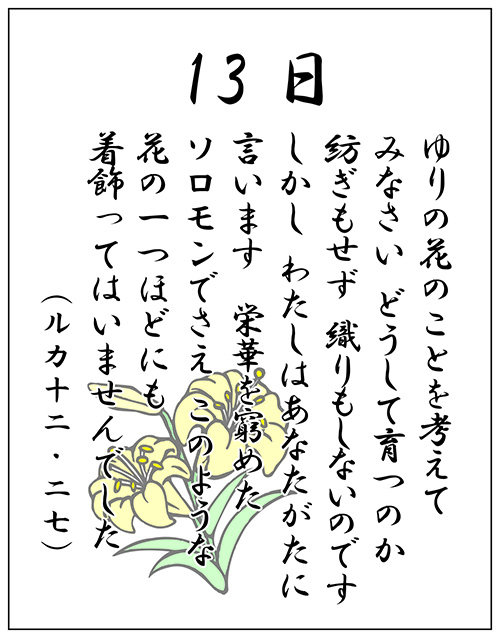 13日
ゆりの花のことを考えて
みなさい どうして育つのか
紡ぎもせず 織りもしないのです
しかし わたしはあなたがたに
言います 栄華を窮めた
ソロモンでさえ このような
花の一つほどにも
着飾ってはいませんでした
（ルカ十二・二七）